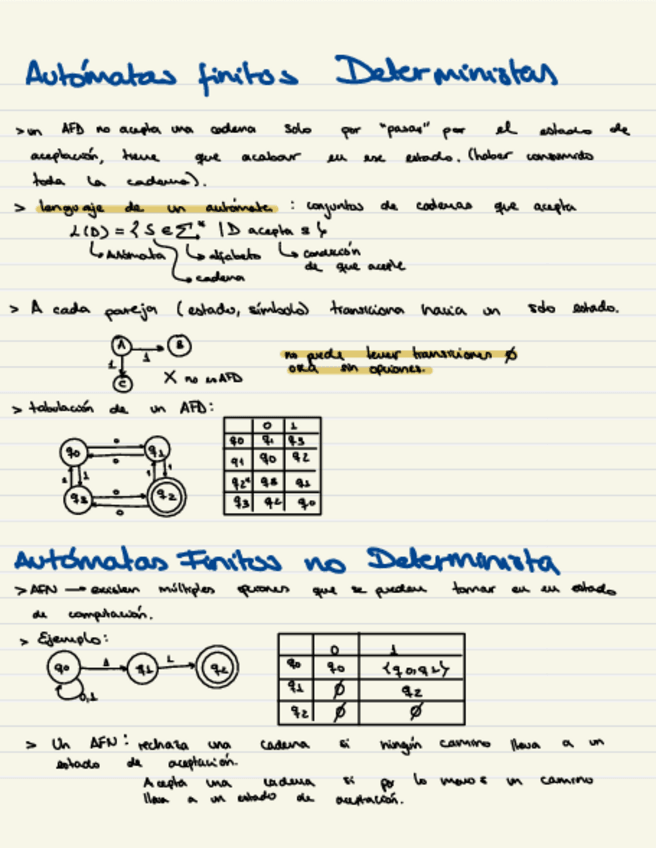 Autómatas finitos Deterministas
> un AFD no acepta una cadena solo por "pasar" por el estado de
aceptación, tiene que acabar en ese estado. (haber consumido
toda la cadena).
> lenguaje de un autómata : conjuntos de cadenas que acepta
L(D) = { S ∈ Σ* | D acepta s }
Autómata alfabeto condición
de que acepte
cadena
> A cada pareja (estado, símbolo) transiciona hacia un solo estado.
A B
1
1
C X no es AFD
no puede tener transiciones ∅
sin opciones.
> tabulación de un AFD:
0 1
q0 q1 q3
q1 q0 q2
q2* q3 q1
q3 q2 q0
q0 0 q1
0
1 1 1 1
q3 0 q2
0
Autómatas Finitos no Determinista
> AFN → existen múltiples opciones que se pueden tomar en un estado
de computación.
> Ejemplo:
q0 1 q1 1 q2
0,1
0 1
q0 q0 {q0,q1}
q1 ∅ q2
q2 ∅ ∅
> Un AFN : rechaza una cadena si ningún camino lleva a un
estado de aceptación.
Acepta una cadena si por lo menos un camino
lleva a un estado de aceptación.